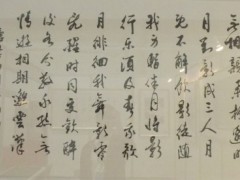 相親舉杯邀
月對影成三人月
既不解飲影徒隨
我身暫伴月將影
行樂須及春我歌
月徘徊我舞影零
亂醒时同交歡醉
後各分散永結無
情遊相期邈雲漢